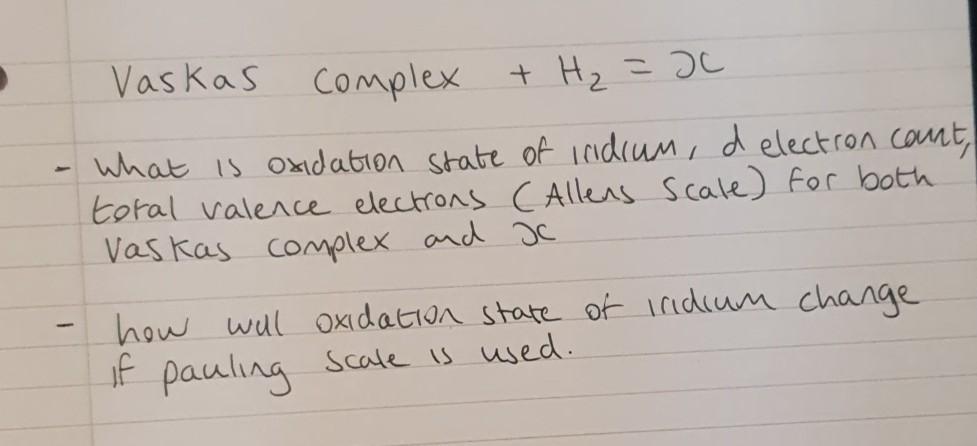 Vaskas complex + H₂ = x
- What is oxidation state of iridium, d electron count,
total valence electrons (Allens Scale) for both
Vaskas complex and x
- how will oxidation state of iridium change
if pauling scale is used.